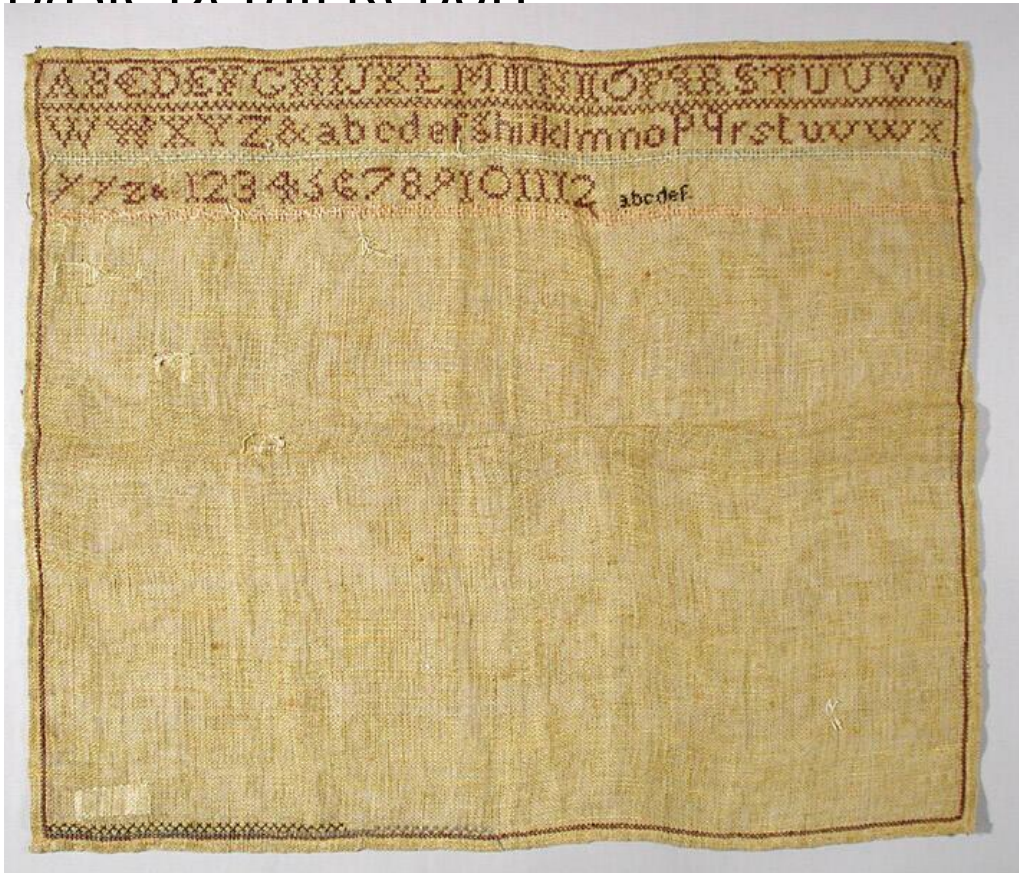 ABCDEFGHIJKLMMNNOPQRSTUUVV
WWXYZ&abcdefghijklmnopqrstuvwx
yyz& 123456789101112 abcdef.